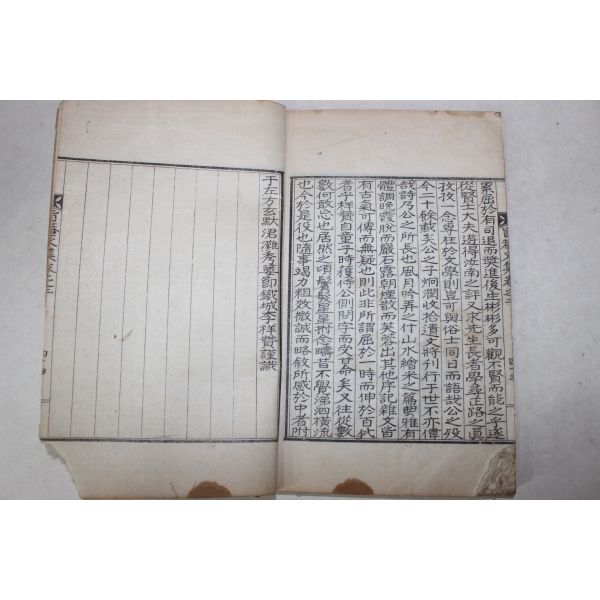 累屈於有司退而奬進後生彬彬多可觀不賢而能之乎遂
從賢士大夫遊得汝南之評又求先生長者學尋正路之眞
孜孜一念專在於文學則豈可與俗士同日而語哉公之歿
今二十餘載矣公之子炯潤收拾遺文將刊行于世不亦偉
哉詩乃公之所長也風月吟弄之什山水繪采之篇奧雅有
體調晩霞脫而嚴石露朝煙散而芙蓉出其他序記雜文皆
有古氣可傳而無疑也則此非所謂屈於一時而伸於百代
者乎祥贊自童子時獲侍公側問字而受其命矣又往從數
數何敢忘也居然之頃鬢髮星星拊念疇昔不覺涕泗橫流
也今於是役也隨事竭力粗效微誠而略敘所感於中者附
于左方玄黓涒灘秀葽節鐵城李祥贊謹識